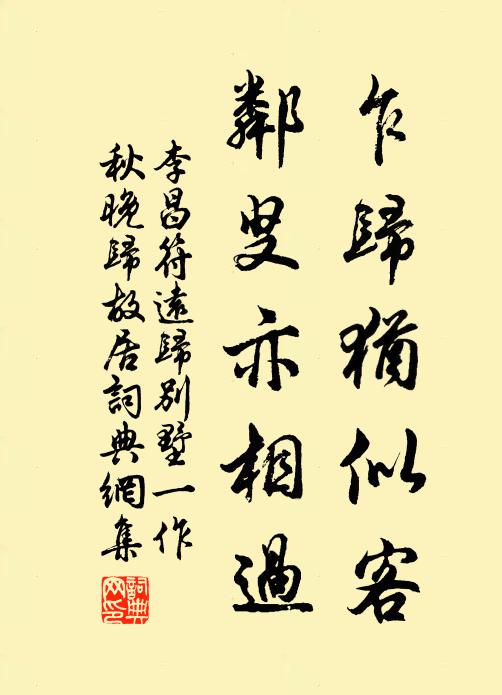 乍歸猶似客
鄰叟亦相過
李昌符遠歸別墅一作
秋晚歸故居詞典網集
詞典
网印